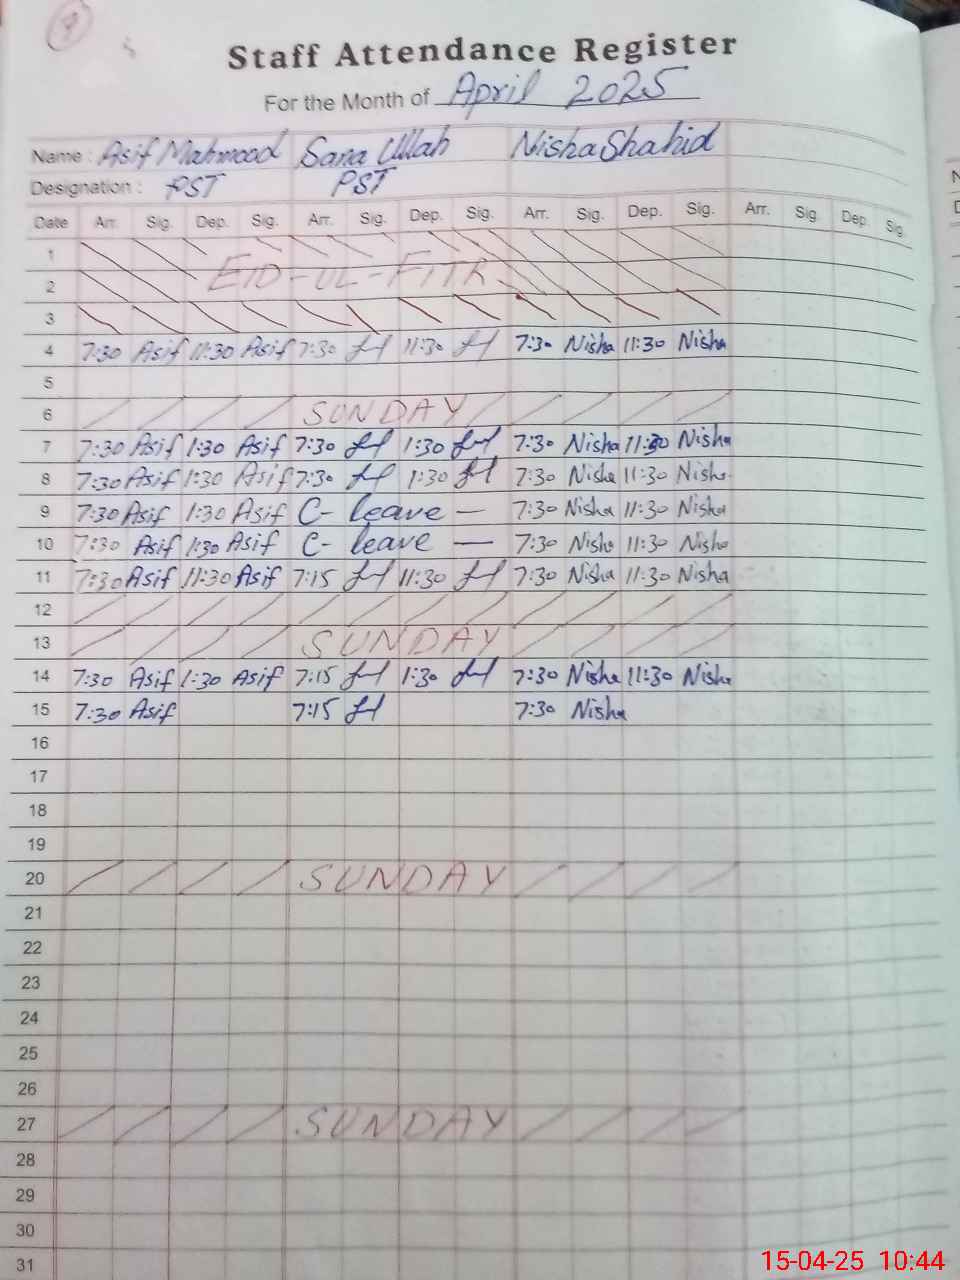 9
Staff Attendance Register
For the Month of April 2025
Name : Asif Mahmood Sana Ullah Nisha Shahid
Designation : PST PST
Date Arr. Sig. Dep. Sig. Arr. Sig. Dep. Sig. Arr. Sig. Dep. Sig. Arr. Sig. Dep. Sig.
1
2 EID-UL-FITR
3
4 7:30 Asif 11:30 Asif 7:30 11:30 7:30 Nisha 11:30 Nisha
5
6 SUNDAY
7 7:30 Asif 1:30 Asif 7:30 1:30 7:30 Nisha 11:30 Nisha
8 7:30 Asif 1:30 Asif 7:30 1:30 7:30 Nisha 11:30 Nisha
9 7:30 Asif 1:30 Asif C- leave — 7:30 Nisha 11:30 Nisha
10 7:30 Asif 1:30 Asif C- leave — 7:30 Nisha 11:30 Nisha
11 7:30 Asif 11:30 Asif 7:15 11:30 7:30 Nisha 11:30 Nisha
12
13 SUNDAY
14 7:30 Asif 1:30 Asif 7:15 1:30 7:30 Nisha 11:30 Nisha
15 7:30 Asif 7:15 7:30 Nisha
16
17
18
19
20 SUNDAY
21
22
23
24
25
26
27 SUNDAY
28
29
30
31
15-04-25 10:44